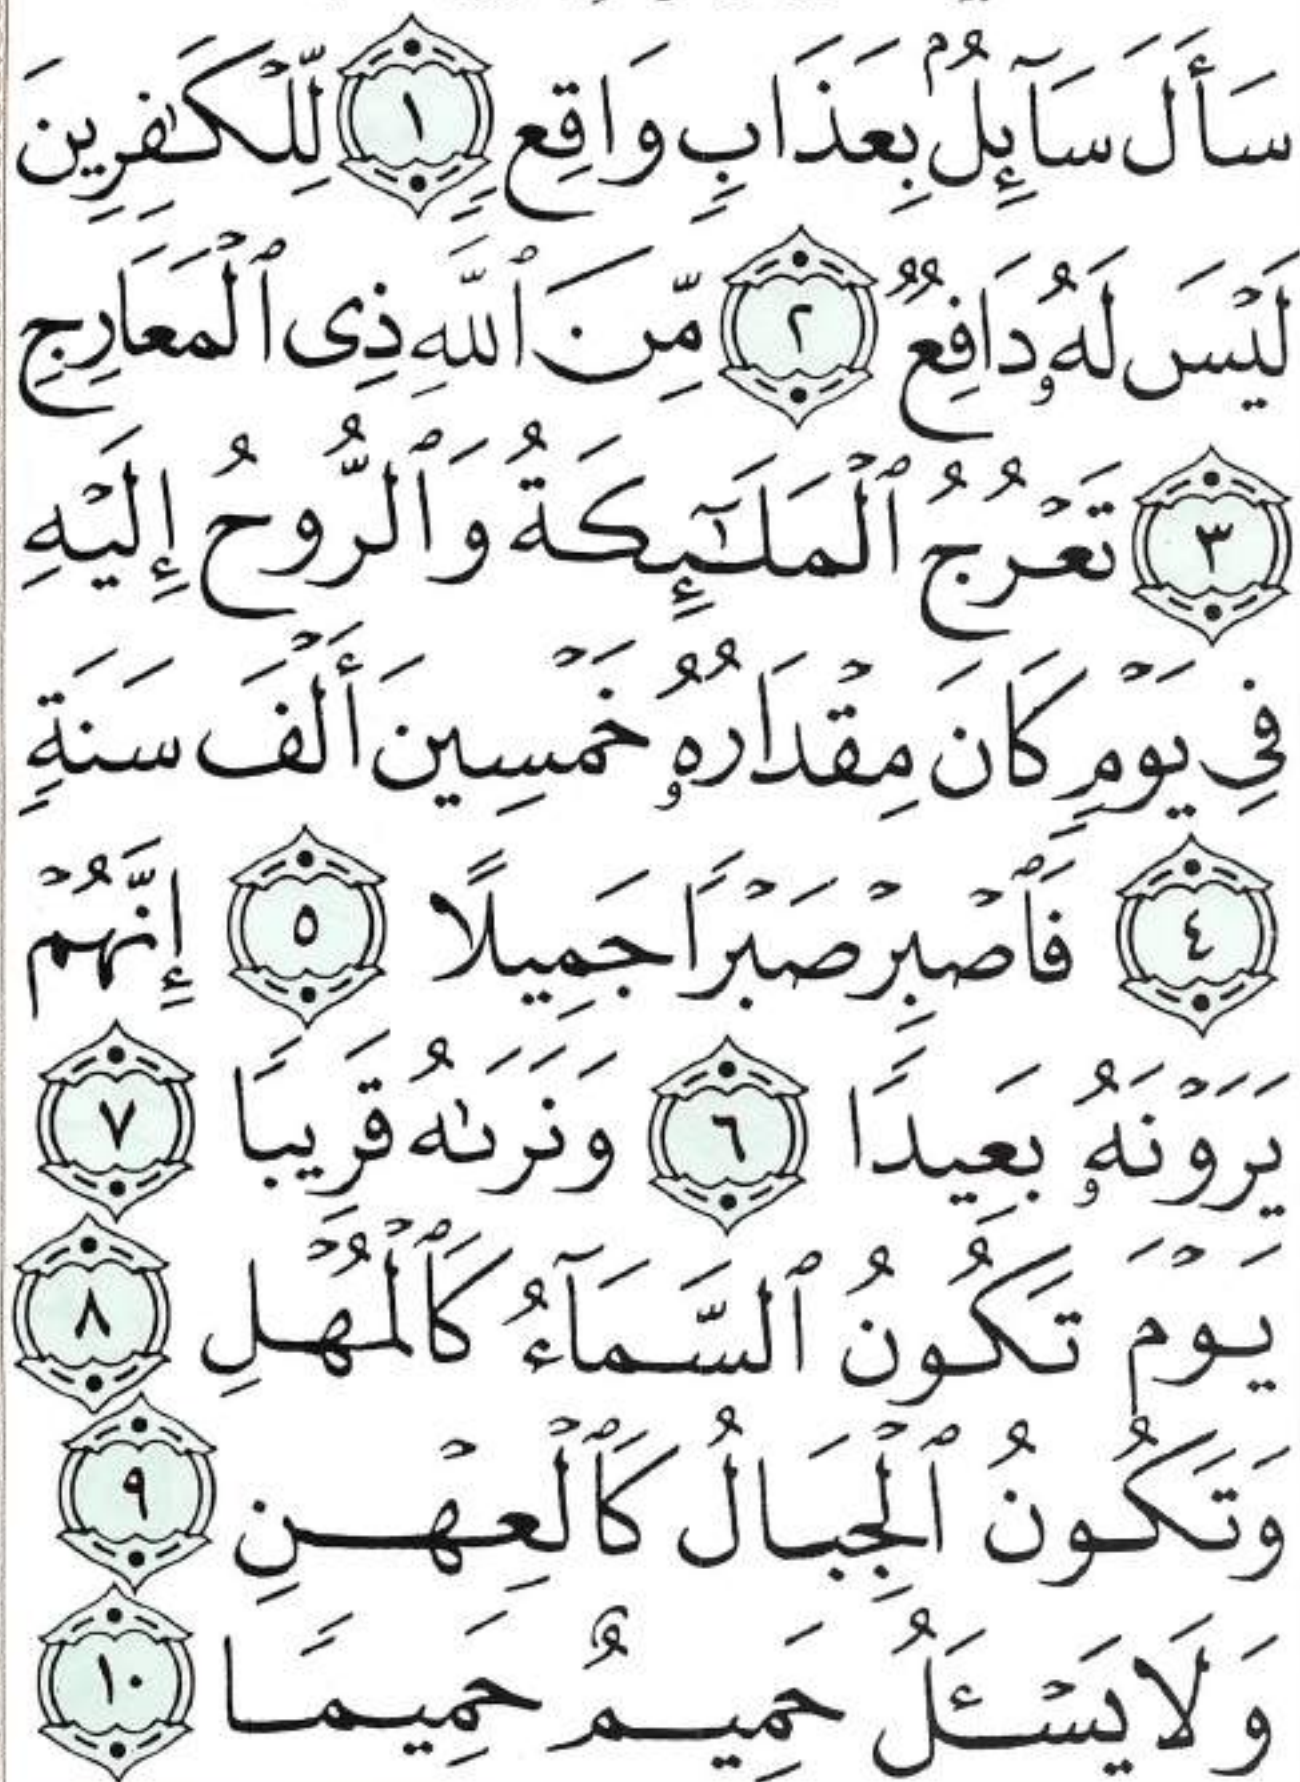 سَأَلَ سَآئِلُۢ بِعَذَابٍ وَاقِعٍ ١ لِّلۡكَٰفِرِينَ
لَيۡسَ لَهُۥ دَافِعٌ ٢ مِّنَ ٱللَّهِ ذِي ٱلۡمَعَارِجِ
٣ تَعۡرُجُ ٱلۡمَلَٰٓئِكَةُ وَٱلرُّوحُ إِلَيۡهِ
فِي يَوۡمٖ كَانَ مِقۡدَارُهُۥ خَمۡسِينَ أَلۡفَ سَنَةٖ
٤ فَٱصۡبِرۡ صَبۡرٗا جَمِيلًا ٥ إِنَّهُمۡ
يَرَوۡنَهُۥ بَعِيدٗا ٦ وَنَرَىٰهُ قَرِيبٗا ٧
يَوۡمَ تَكُونُ ٱلسَّمَآءُ كَٱلۡمُهۡلِ ٨
وَتَكُونُ ٱلۡجِبَالُ كَٱلۡعِهۡنِ ٩
وَلَا يَسۡـَٔلُ حَمِيمٌ حَمِيمٗا ١٠